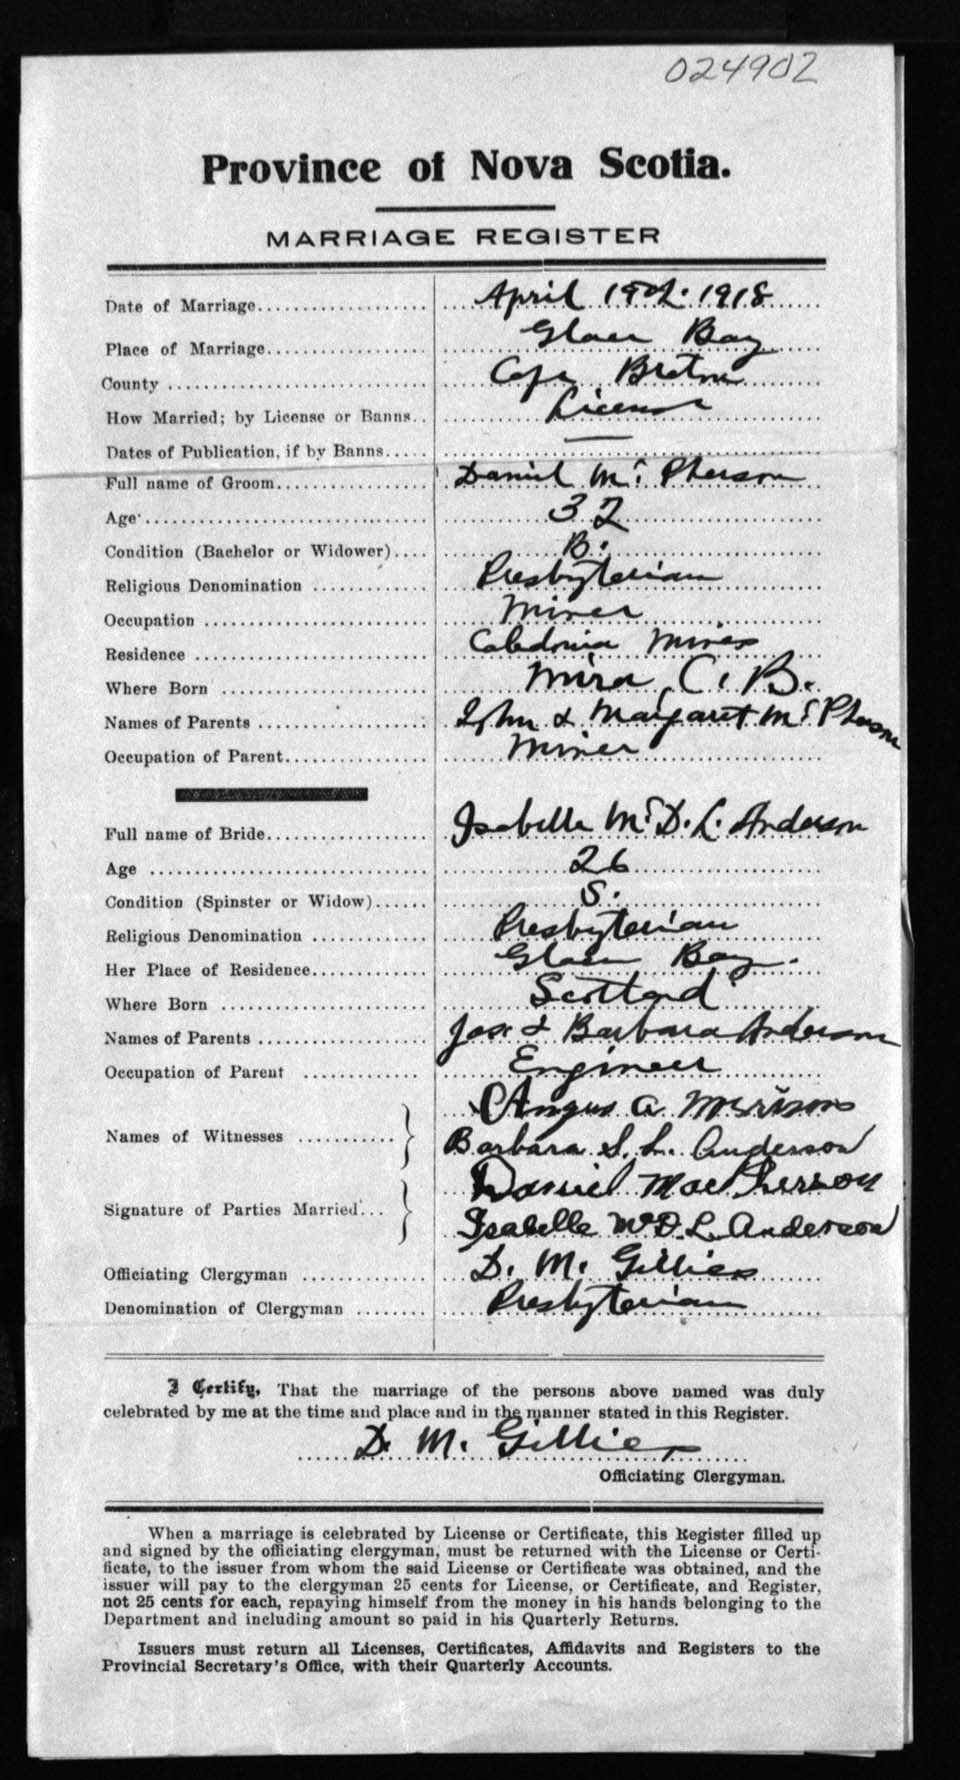 024902
Province of Nova Scotia.
MARRIAGE REGISTER
Date of Marriage April 19th. 1918
Place of Marriage Glace Bay
County Cape Breton
How Married; by License or Banns License
Dates of Publication, if by Banns —
Full name of Groom Daniel Mc Pherson
Age 32
Condition (Bachelor or Widower) B.
Religious Denomination Presbyterian
Occupation Miner
Residence Caledonia Mines
Where Born Mira, C. B.
Names of Parents John & Margaret Mc Pherson
Occupation of Parent Miner
Full name of Bride Isabella Mc D. L. Anderson
Age 26
Condition (Spinster or Widow) S.
Religious Denomination Presbyterian
Her Place of Residence Glace Bay.
Where Born Scotland
Names of Parents Jas. & Barbara Anderson
Occupation of Parent Engineer
Names of Witnesses Angus A Morrison
Barbara S. L. Anderson
Signature of Parties Married Daniel MacPherson
Isabella McD. L. Anderson
Officiating Clergyman D. M. Gillies
Denomination of Clergyman Presbyterian
I Certify, That the marriage of the persons above named was duly
celebrated by me at the time and place and in the manner stated in this Register.
D. M. Gillies
Officiating Clergyman.
When a marriage is celebrated by License or Certificate, this Register filled up
and signed by the officiating clergyman, must be returned with the License or Certi-
ficate, to the issuer from whom the said License or Certificate was obtained, and the
issuer will pay to the clergyman 25 cents for License, or Certificate, and Register,
not 25 cents for each, repaying himself from the money in his hands belonging to the
Department and including amount so paid in his Quarterly Returns.
Issuers must return all Licenses, Certificates, Affidavits and Registers to the
Provincial Secretary's Office, with their Quarterly Accounts.